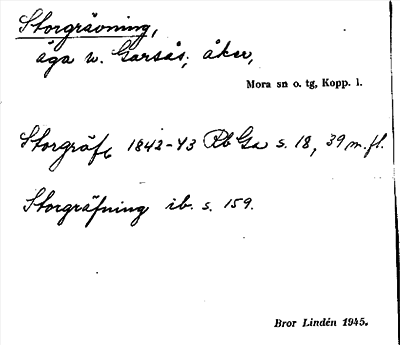 Storgrävning,
äga v. Garsås; åker,
Mora sn o. tg, Kopp. l.
Storgräfn 1842-43 Rb Ga s. 18, 39 m. fl.
Storgräfning ib. s. 159.
Bror Lindén 1945.